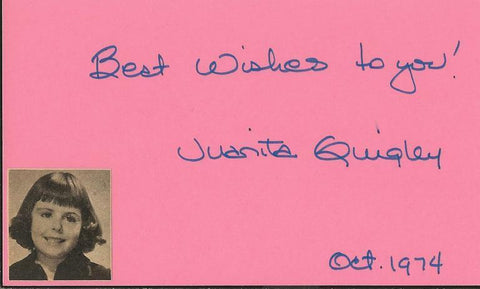 Best Wishes to you!
Juanita Quigley
Oct. 1974